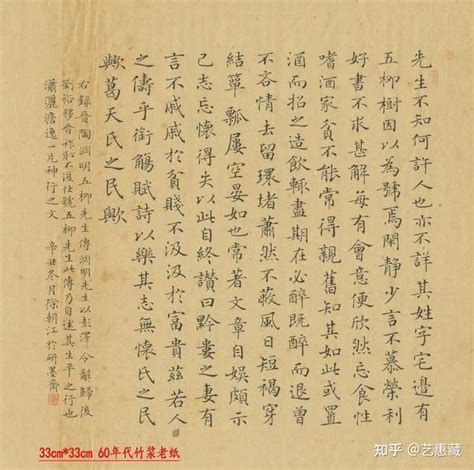 先生不知何許人也亦不詳其姓字宅邊有
五柳樹因以為號焉閑靜少言不慕榮利
好書不求甚解每有會意便欣然忘食性
嗜酒家貧不能常得親舊知其如此或置
酒而招之造飲輒盡期在必醉既醉而退曾
不吝情去留環堵蕭然不蔽風日短褐穿
結簞瓢屢空晏如也常著文章自娛頗示
己志忘懷得失以此自終讚曰黔婁之妻有
言不戚戚於貧賤不汲汲於富貴茲若人
之儔乎銜觴賦詩以樂其志無懷氏之民
歟葛天氏之民歟
右錄晉陶淵明五柳先生傳淵明先生以彭澤令辭歸後
劉裕移晉祚恥不復仕號五柳先生此傳乃自述其生平之行也
瀟灑澹逸一片神行之文 辛丑冬月徐朝江於研墨齋
33cm*33cm 60年代竹浆老纸
知乎 @艺惠藏